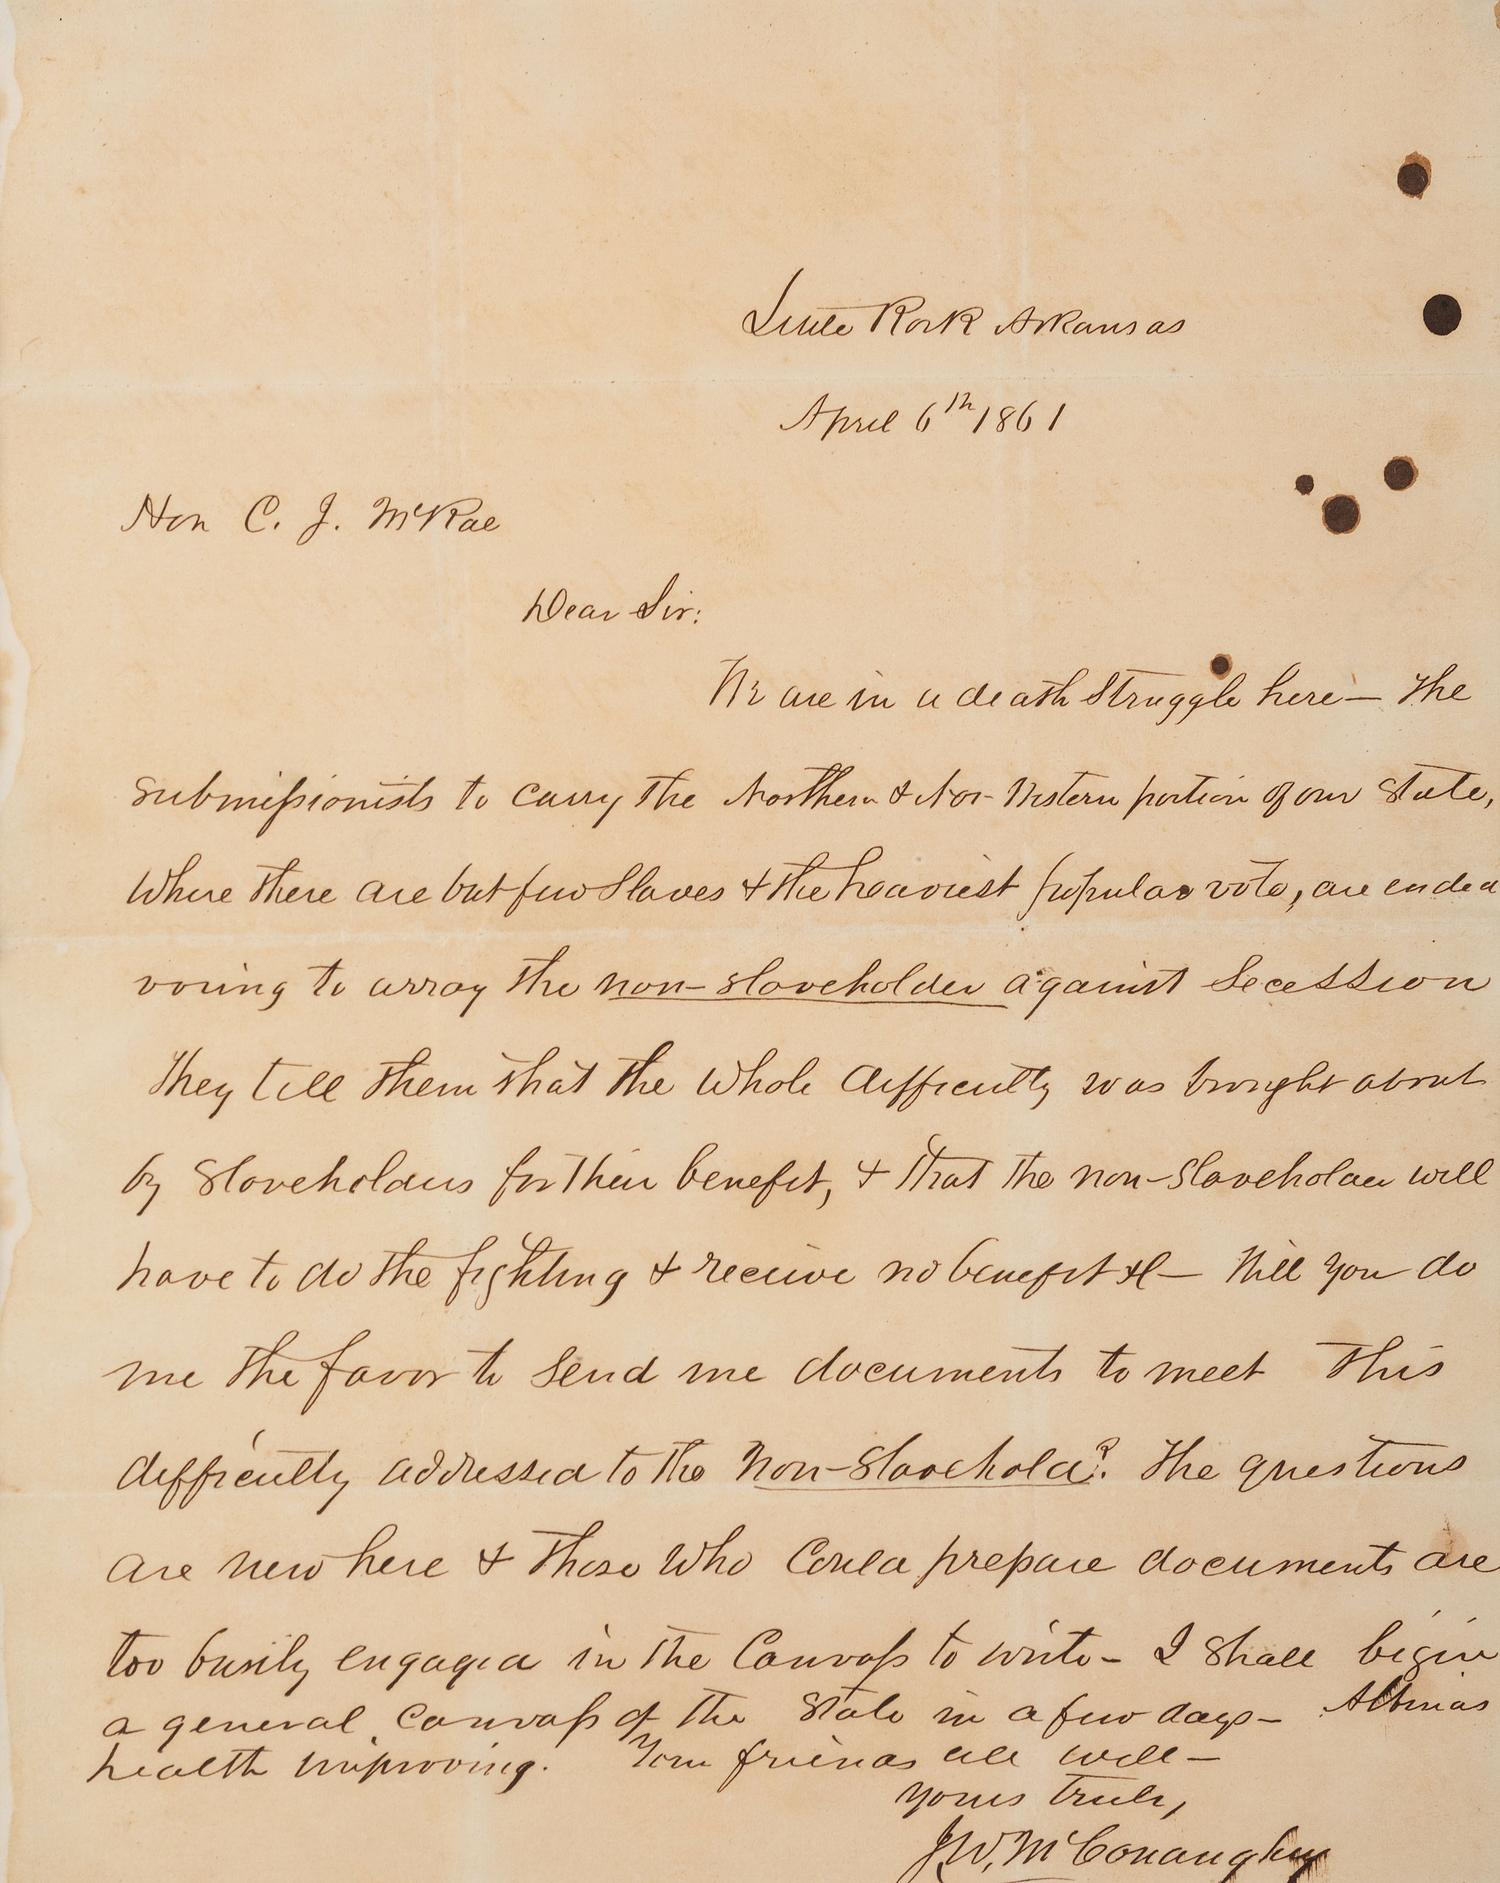 Little Rock Arkansas
April 6th 1861
Hon C. J. McRae
Dear Sir:
We are in a death struggle here — The
submissionists to carry the Northern & Nor-Western portion of our State,
where there are but few Slaves & the heaviest popular vote, are endea
voring to array the non-slaveholder against Secession
They tell them that the whole difficulty was brought about
by Slaveholders for their benefit, & that the non-Slaveholder will
have to do the fighting & receive no benefit &c — Will you do
me the favor to send me documents to meet this
difficulty addressed to the Non-Slaveholdr. The questions
are new here & those who could prepare documents are
too busily engaged in the Canvass to write — I shall begin
a general canvass of the State in a few days —
health improving. Your friends all well —
Yours truly,
J. W. McConaughey